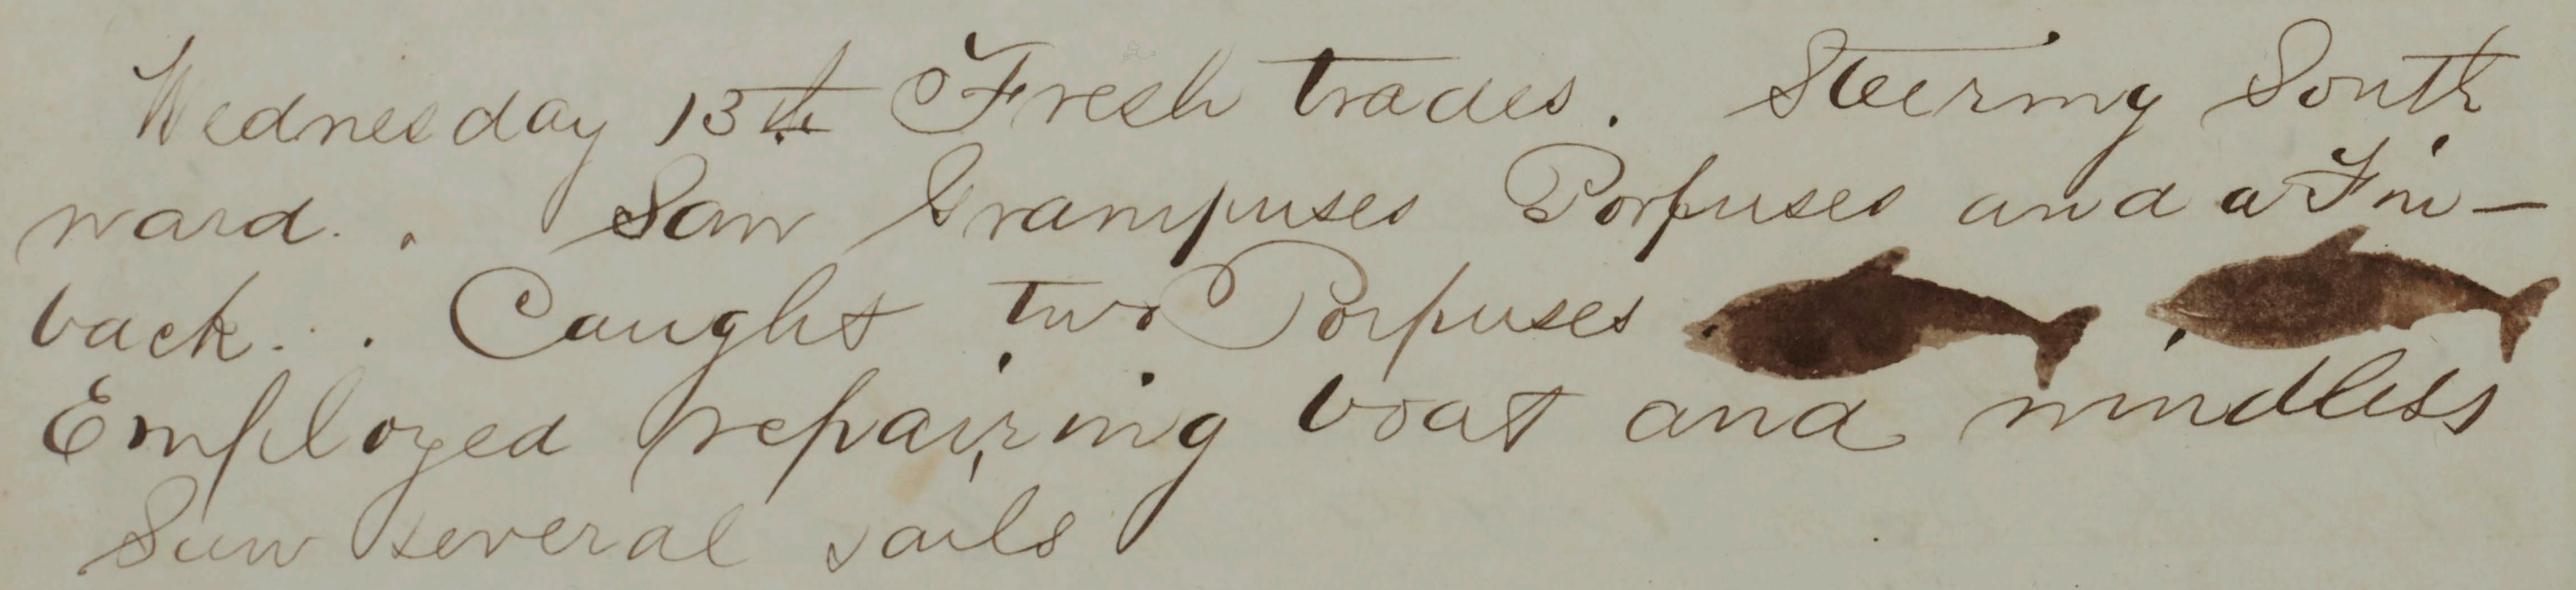 Wednesday 13th Fresh trades. Steering South
ward. . Saw Grampuses Porpuses and a Fin-
back. . Caught two Porpuses
Employed repairing boat and windlass
Saw several sails